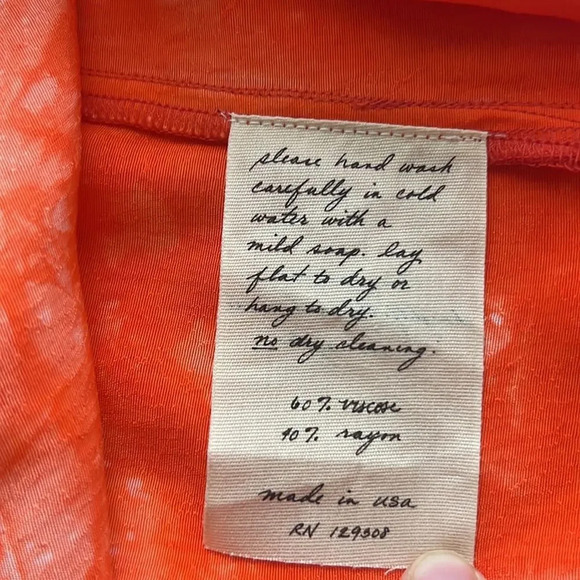 please hand wash
carefully in cold
water with a
mild soap. lay
flat to dry or
hang to dry.
no dry cleaning.
60% viscose
40% rayon
made in usa
RN 129308